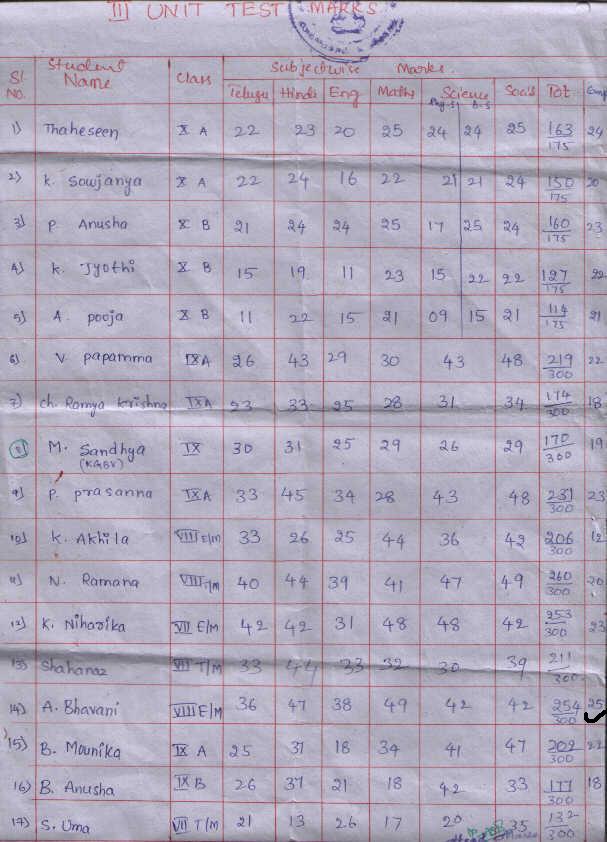 III UNIT TEST MARKS
Sl No. Student Name Class Subjectwise Marks.
Telugu Hindi Eng Maths Science Social Tot
Phy.S B.S
1) Thaheseen X A 22 23 20 25 24 24 25 163/175 24
2) K. Sowjanya X A 22 24 16 22 21 21 24 150/175 20
3) P. Anusha X B 21 24 24 25 17 25 24 160/175 23
4) K. Jyothi X B 15 19 11 23 15 22 22 127/175 22
5) A. pooja X B 11 22 15 21 09 15 21 114/175 21
6) V. papamma IX A 26 43 29 30 43 48 219/300 22
7) ch. Ramya Krishna IX A 23 33 25 28 31 34 174/300 18
8) M. Sandhya IX 30 31 25 29 26 29 170/300 19
(KGBV)
9) P. prasanna IX A 33 45 34 28 43 48 231/300 23
10) K. Akhila VIII E/M 33 26 25 44 36 42 206/300 12
11) N. Ramana VIII T/M 40 44 39 41 47 49 260/300 20
12) K. Niharika VII E/M 42 42 31 48 48 42 253/300 23
13) Shahanaz VII T/M 33 44 33 32 30 39 211/300
14) A. Bhavani VIII E/M 36 47 38 49 42 42 254/300 25
15) B. Mounika IX A 25 37 18 34 41 47 202/300 22
16) B. Anusha IX B 26 37 21 18 42 33 177/300 18
17) S. Uma VII T/M 21 13 26 17 20 35 132/300